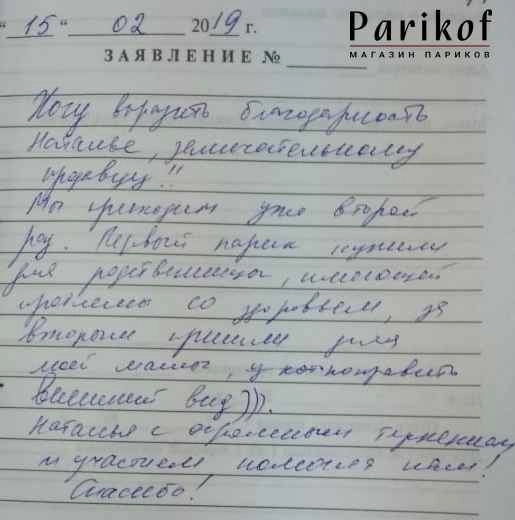 Parikof
МАГАЗИН ПАРИКОВ
" 15 " 02 2019 г.
ЗАЯВЛЕНИЕ №
Хочу выразить благодарность
Наталье, замечательному
продавцу!!
Мы приходим уже второй
раз. Первый парик купили
для родственницы, имеющей
проблемы со здоровьем, за
вторым пришли для
моей мамы, поправить
внешний вид))).
Наталья с огромным терпением
и участием помогает нам!
Спасибо!